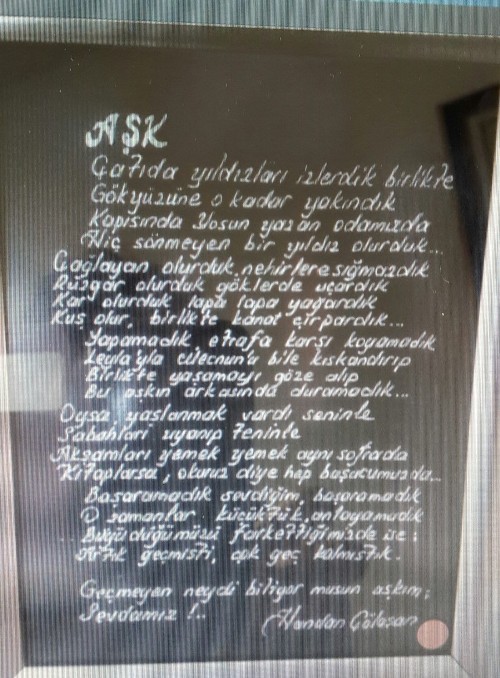 AŞK
Çatıda yıldızları izlerdik birlikte
Gökyüzüne o kadar yakındık
Kapısında Yosun yazan odamızda
Hiç sönmeyen bir yıldız olurduk...
Çağlayan olurduk, nehirlere sığmazdık
Rüzgar olurduk göklerde uçardık
Kar olurduk lapa lapa yağardık
Kuş olur, birlikte kanat çırpardık...
Yapamadık etrafa karşı koyamadık
Leyla'yla Mecnun'u bile kıskandırıp
Birlikte yaşamayı göze alıp
Bu aşkın arkasında duramadık...
Oysa yaşlanmak vardı seninle
Sabahları uyanıp teninle
Akşamları yemek yemek aynı sofrada
Kitaplarsa, okuruz diye hep başucumuzda...
Başaramadık sevdiğim, başaramadık
O zamanlar küçüktük, anlayamadık
Büyüdüğümüzü farkettiğimizde ise;
Artık geçmişti, çok geç kalmıştık.
Geçmeyen neydi biliyor musun aşkım;
Sevdamız !..
Handan Gölaşan